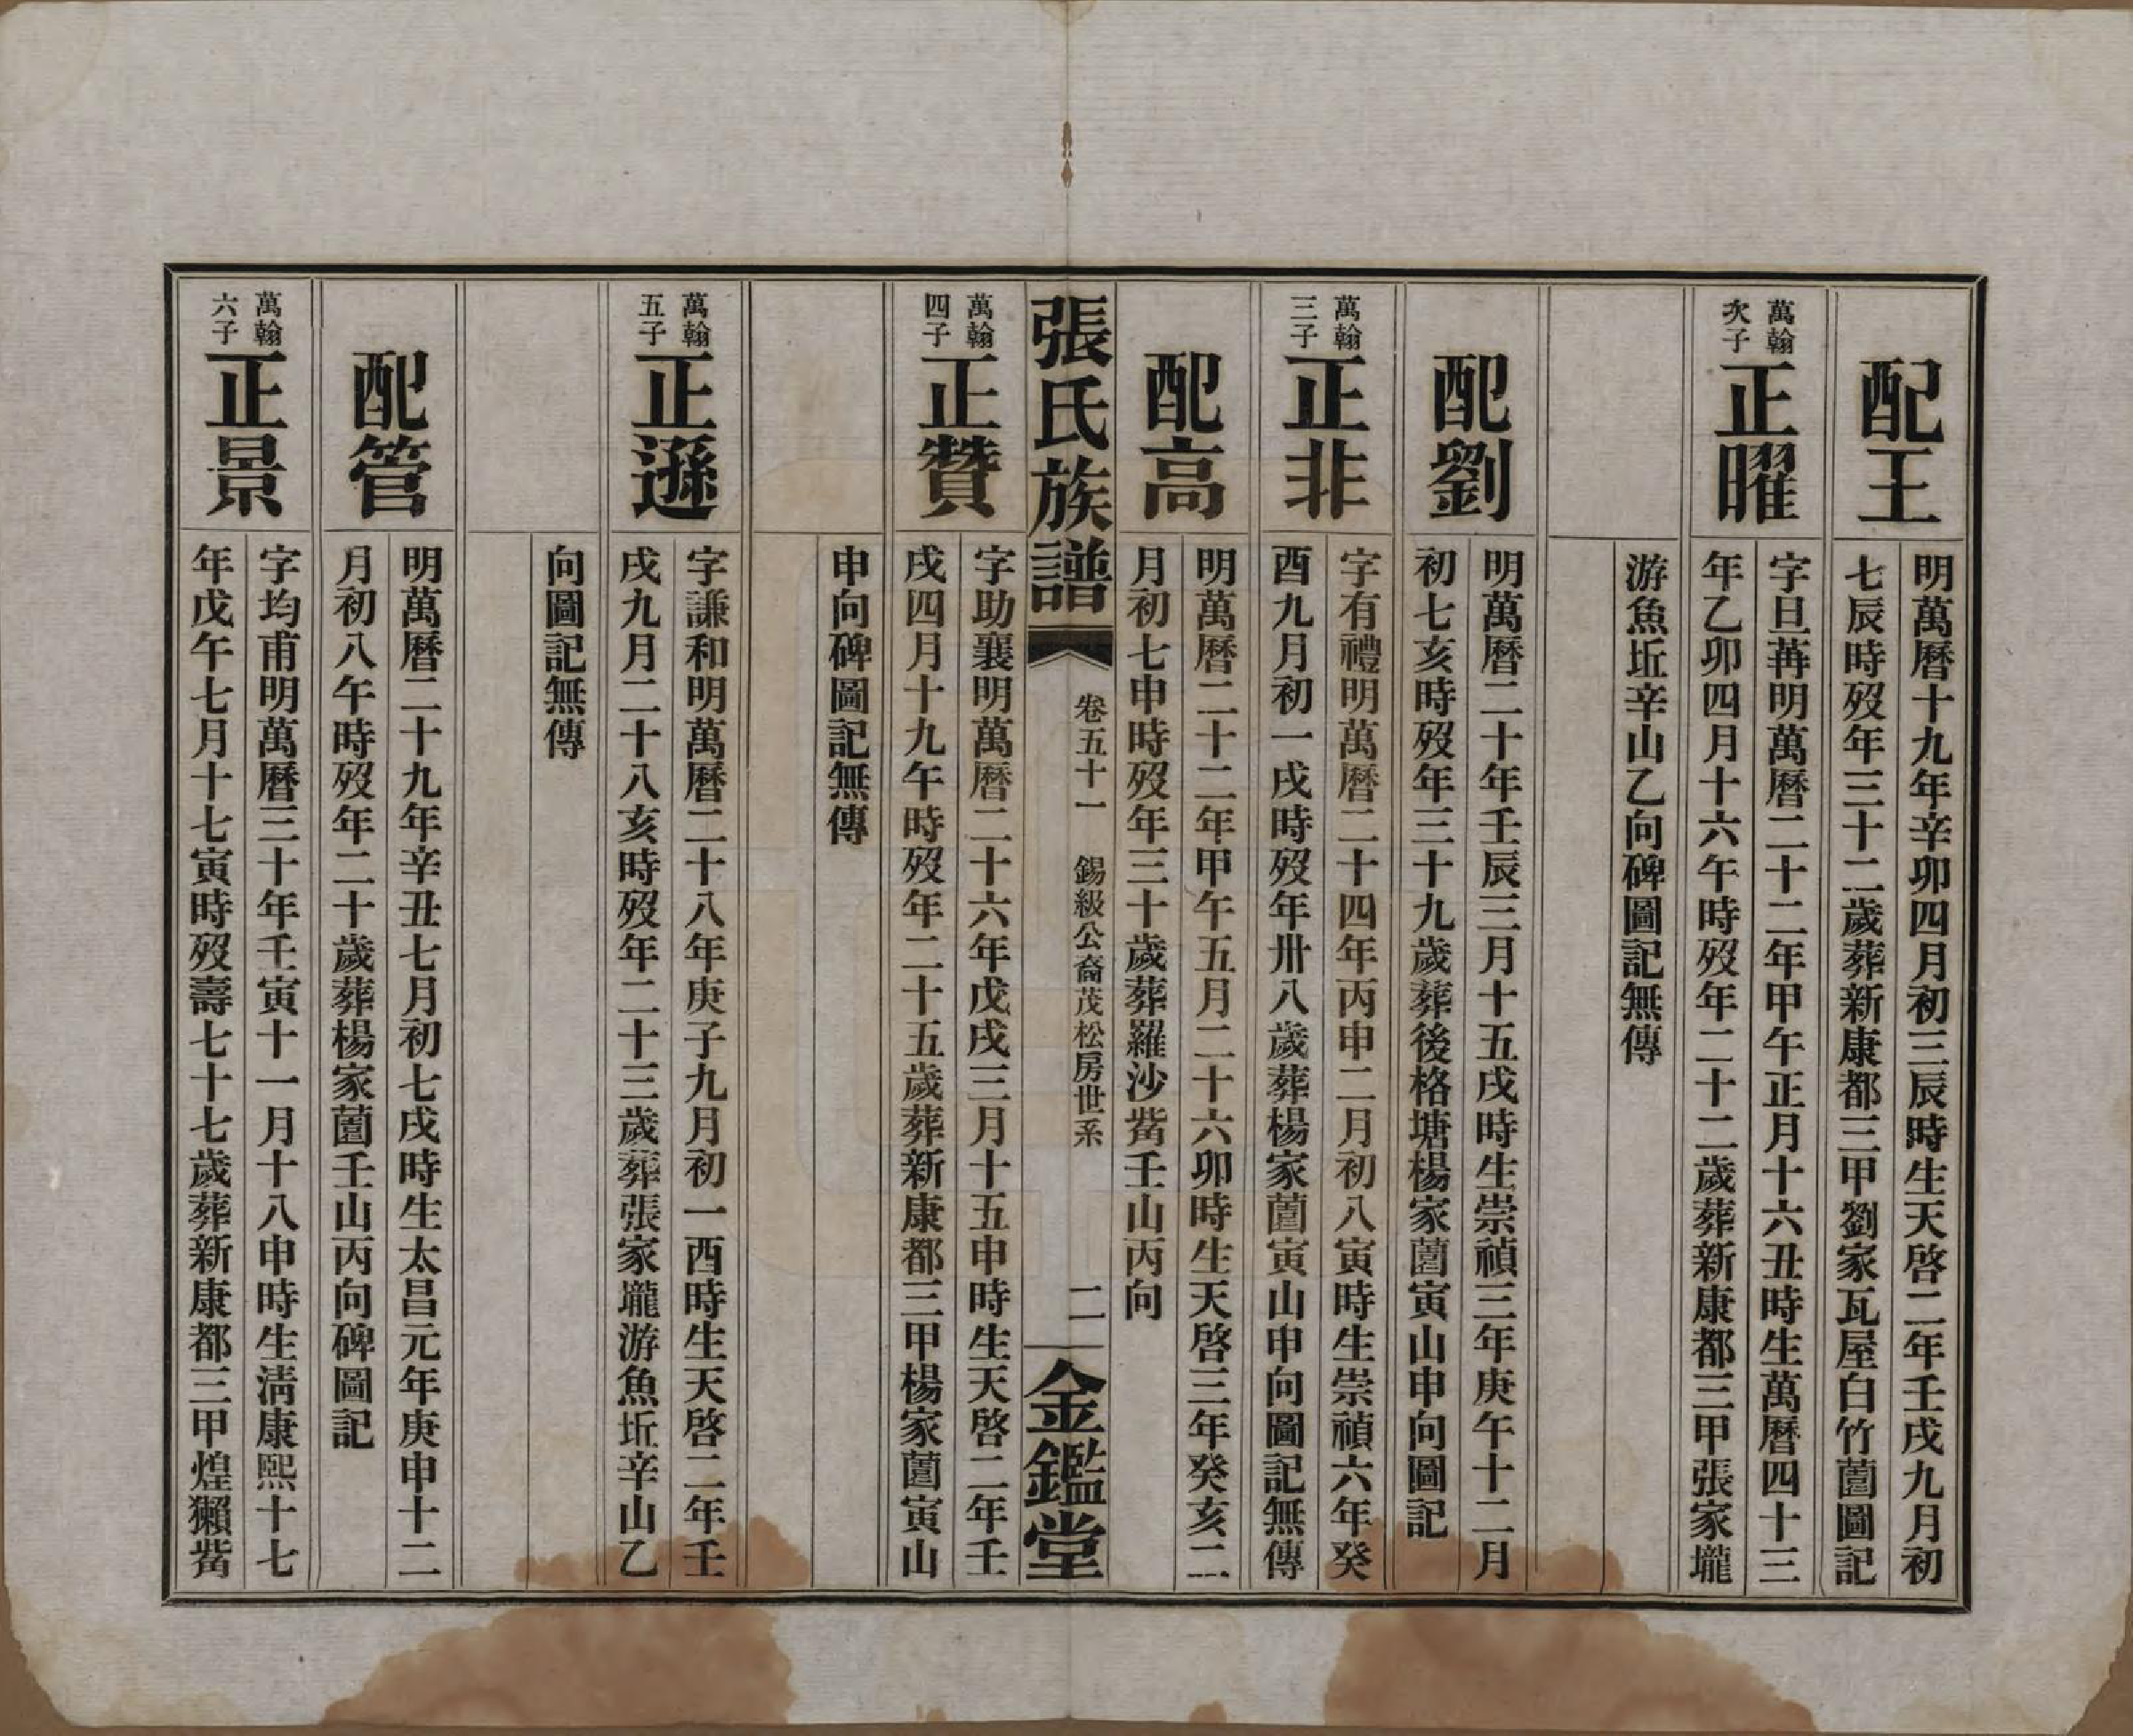 配王
明萬曆十九年辛卯四月初三辰時生天啓二年壬戌九月初
七辰時歿年三十二歲葬新康都三甲劉家瓦屋白竹薗圖記
萬翰
次子
正曜
字旦苒明萬曆二十二年甲午正月十六丑時生萬曆四十三
年乙卯四月十六午時歿年二十二歲葬新康都三甲張家壠
游魚坵辛山乙向碑圖記無傳
配劉
明萬曆二十年壬辰三月十五戌時生崇禎三年庚午十二月
初七亥時歿年三十九歲葬後格塘楊家薗寅山申向圖記
萬翰
三子
正非
字有禮明萬曆二十四年丙申二月初八寅時生崇禎六年癸
酉九月初一戌時歿年卅八歲葬楊家薗寅山申向圖記無傳
配高
明萬曆二十二年甲午五月二十六卯時生天啓三年癸亥二
月初七申時歿年三十歲葬羅沙嵅壬山丙向
張氏族譜
卷五十一 錫級公裔茂松房世系
二
金鑑堂
萬翰
四子
正贊
字助襄明萬曆二十六年戊戌三月十五申時生天啓二年壬
戌四月十九午時歿年二十五歲葬新康都三甲楊家薗寅山
申向碑圖記無傳
萬翰
五子
正遜
字謙和明萬曆二十八年庚子九月初一酉時生天啓二年壬
戌九月二十八亥時歿年二十三歲葬張家壠游魚坵辛山乙
向圖記無傳
配管
明萬曆二十九年辛丑七月初七戌時生太昌元年庚申十二
月初八午時歿年二十歲葬楊家薗壬山丙向碑圖記
萬翰
六子
正景
字均甫明萬曆三十年壬寅十一月十八申時生淸康熙十七
年戊午七月十七寅時歿壽七十七歲葬新康都三甲煌獺